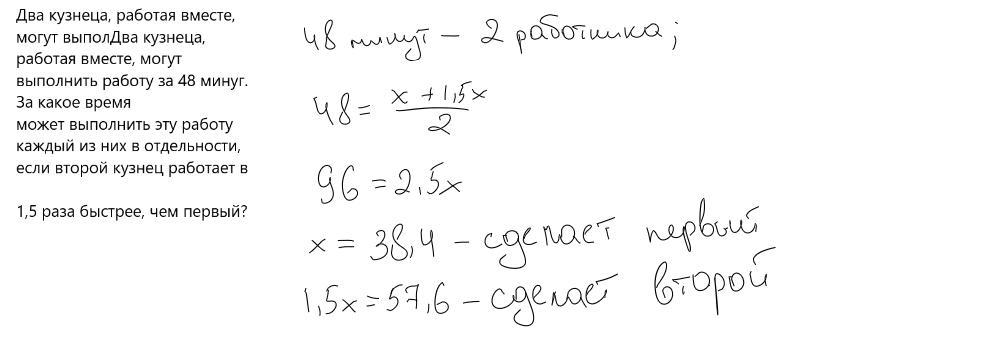 Два кузнеца, работая вместе,
могут выполДва кузнеца,
работая вместе, могут
выполнить работу за 48 минуг.
За какое время
может выполнить эту работу
каждый из них в отдельности,
если второй кузнец работает в
1,5 раза быстрее, чем первый?
48 минут – 2 работника;
48 = (x + 1,5x)/2
96 = 2,5x
x = 38,4 – сделает первый
1,5x = 57,6 – сделает второй